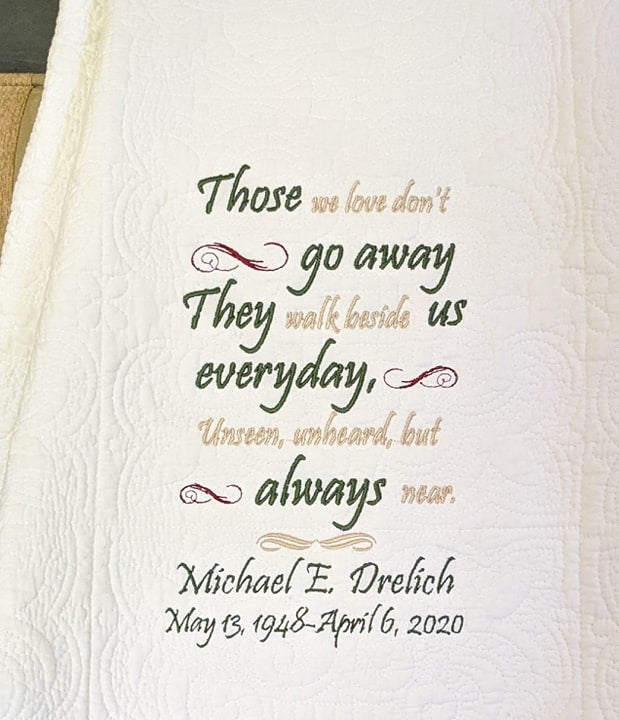 Those we love don't
go away
They walk beside us
everyday,
Unseen, unheard, but
always near.
Michael E. Drelich
May 13, 1948-April 6, 2020